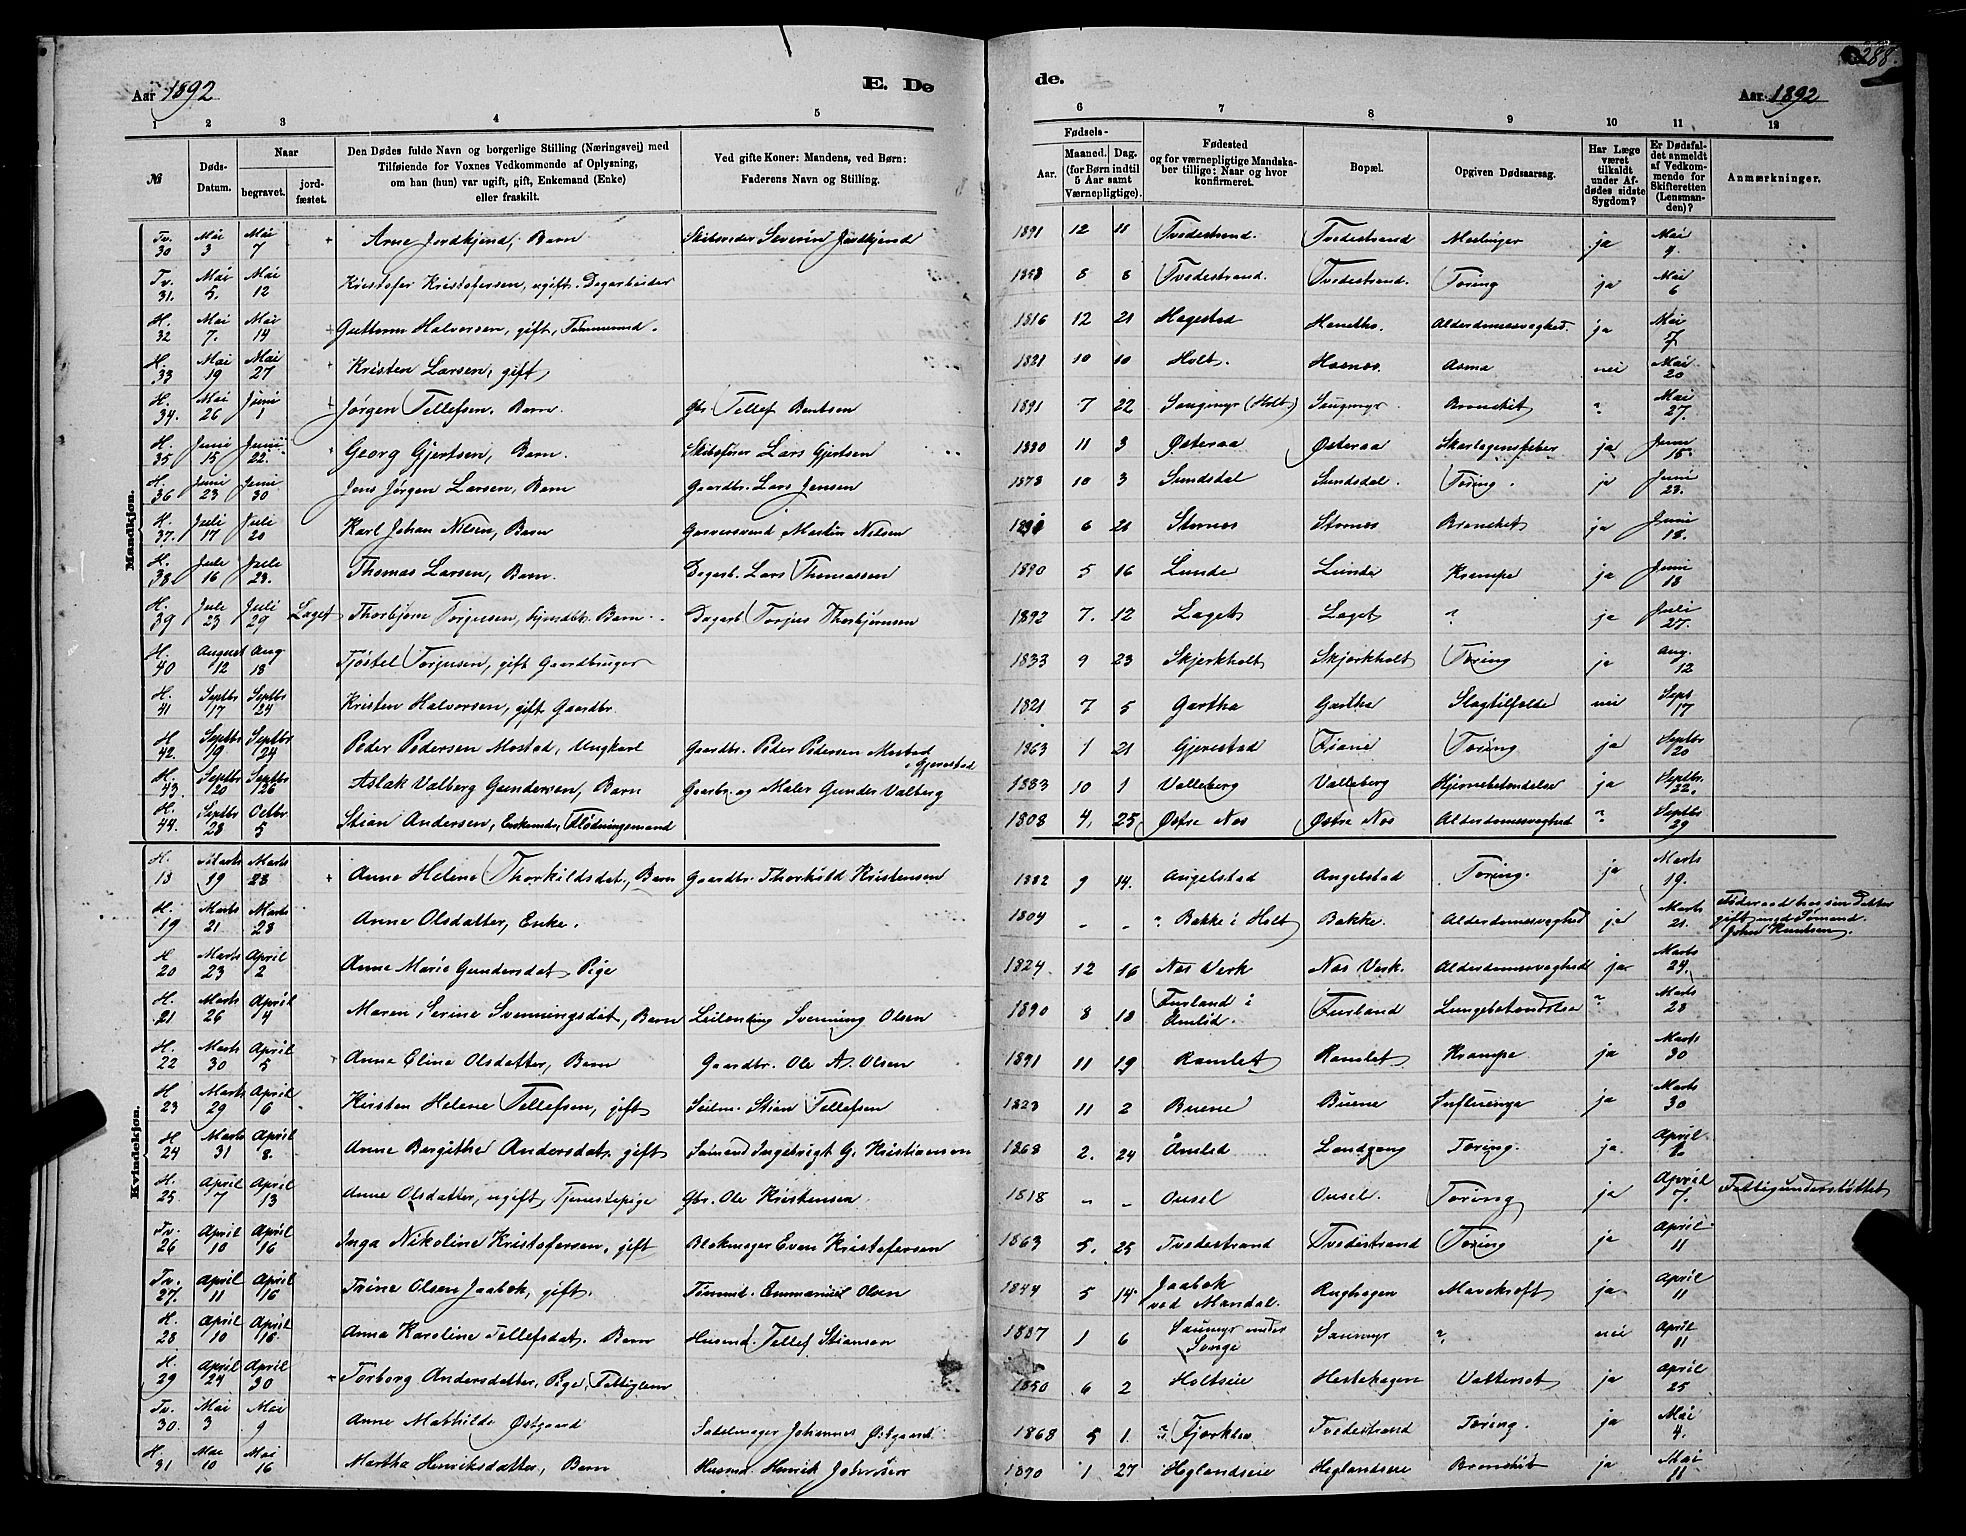 288.
Aar 1892
E. De
de.
Aar 1892
1 2 3 4 5 6 7 8 9 10 11 12
№
Døds-
Datum.
Naar
begravet.
jord-
fæstet.
Den Dødes fulde Navn og borgerlige Stilling (Næringsvei) med
Tilføiende for Voxnes Vedkommende af Oplysning,
om han (hun) var ugift, gift, Enkemand (Enke)
eller fraskilt.
Ved gifte Koner: Mandens, ved Børn:
Faderens Navn og Stilling.
Fødsels-
Aar.
Maaned.
Dag.
(for Børn indtil
5 Aar samt
Værnepligtige).
Fødested
og for værnepligtige Mandska-
ber tillige: Naar og hvor
konfirmeret.
Bopæl.
Opgiven Dødsaarsag.
Har Læge
været
tilkaldt
under Af-
dødes sidste
Sygdom?
Er Dødsfal-
det anmeldt
af Vedkom-
mende for
Skifteretten
(Lensman-
den)?
Anmærkninger.
Mandkjøn.
Tv. 30 Mai 3 Mai 7 Arne Jordkjend, Barn Skibsreder Severin Jordkjend 1891 12 11 Tvedestrand. Tvedestrand Meslinger ja Mai 4.
Tv. 31. Mai 5. Mai 12 Kristofer Kristofersen, ugift. Dagarbeider 8 8 Tvedestrand. Tvedestrand. Tæring ja Mai 6
H. 32 Mai 7. Mai 14 Guttorm Halvorsen, gift, Tømmermd. 1816 12 21 Hagestad Alderdomssvaghed. ja Mai 7
H. 33 Mai 19 Mai 27 Kristen Larsen, gift 1821 10 10 Holt. Asma nei Mai 20
H. 34. Mai 26 Juni 1 Jørgen Tellefsen. Barn. Gbr. Tellef Bentsen 1891 7 22 Saugmyr (Holt) Saugmyr Bronchit ? Mai 27.
H. 35 Juni 15 Juni 22. Georg Gjertsen, Barn. Skibsfører Lars Gjertsen 1880 11 3 Østeraa Østeraa Skarlagensfeber ja Juni 15
H. 36 Juni 23 Juni 30 Jens Jørgen Larsen, Barn Gaardbr. Lars Jensen 1878 10 3 Sundsdal Sundsdal. Tæring. ja Juni 23.
H. 37. Juli 17 Juli 20 Karl Johan Nilsen, Barn Garversvend Martin Nilsen 6 21 Stornes Stornes Bronchit ja Juni 18.
H. 38. Juli 16 Juli 23. Thomas Larsen, Barn. Dagarb. Lars Thomassen 1890 5 16 Lunde Lunde Krampe ja Juni 18
H. 39 Juli 23 Juli 29 Laget Thorbjørn Torjussen, Barn. Dagarb. Torjus Thorbjørnsen 1892 7. 12 Laget Laget ? ja Juli 27.
H. 40 August 12 Aug. 18 Tjøstel Torjusen, gift Gaardbruger 1833 9 23 Skjerkholt Skjerkholt Tæring ja Aug. 12
H. 41 Septbr 17 Septbr 24 Kristen Halvorsen, gift Gaardbr. 1821 7 5 Gartha Gartha Slagtilfælde nei Sept 17
H. 42. Septbr 19 Septbr 24 Peder Pedersen Mostad, Ungkarl Gaardbr. Peder Pedersen Mostad i Gjerestad 1863 1 21 Gjerestad Fiane Tæring ja Septbr 20
H. 43. Septbr 20 Septbr 26 Aslak Valberg Gundersen, Barn Gaarbr. og Maler Gunder Valberg 1883 10 1 Valleberg Valleberg Hjernebetændelse ja Septbr. 22.
H. 44. Septbr 28 Octbr 5 Stian Andersen, Enkemd., Flødningsmand 1808 4. 25 Østre Nes Østre Nes Alderdomssvaghed ? Septbr 29
Kvindekjøn.
H. 18 Marts 19 Marts 23 Anne Helene Thorkildsdat., Barn Gaardbr. Thorkild Kristensen 1882 9 14. Angelstad Angelstad Tæring. ja Marts 19.
H. 19 Marts 21 Marts 28 Anne Olsdatter, Enke. 1804 - - Bakke i Holt Bakke. Alderdomssvaghed ja Marts 21. Føderaad hos sin Datter gift med Sømand. John Knutsen.
H 20 Marts 23 April 2 Anne Marie Gundersdat. Pige 1824. 12 16 Nes Verk Nes Verk. Alderdomssvaghed ja Marts 24.
H. 21 Marts 26 April 4 Maren Serine Svenningsdat, Barn Leilending Svenning Olsen 1890 8 18 Furland i Åmlid. Furland Lungebetændelse ? Marts 28
H. 22 Marts 30 April 5 Anne Eline Olsdatter, Barn Gaardbr. Ole A. Olsen 1891 11 19 Ramlet Ramlet Krampe ja Marts 30
H 23 Marts 29 April 6 Kirsten Helene Tellefsen, gift Seilm. Stian Tellefsen 1823 11 2 Buene Buene Influenza ja Marts 30
H 24 Marts 31 April 8. Anne Bergithe Andersdat. gift Sømand Ingebrigt G. Kristiansen 1868 2. 24 Åmlid Landgang Tæring. ja April
H. 25 April 7 April 13 Anne Olsdatter, ugift Tjenestepige Gbr. Ole Kristensen 1818 - - Ousel Ousel. Tæring ja April 7. Fattigunderstøttet
Tv. 26 April 10 April 16 Inga Nikoline Kristofersen, gift Blokmager Even Kristofersen 1863 5. 25 Tvedestrand Tvedestrand Tæring ja April 11
Tv. 27. April 11 April 16 Trine Olsen Jaabek, gift. Tømmd. Emmanuel Olsen 1844 5 14 Jaabek ved Mandal. Rughagen Mavekræft ja April 11
H. 28 April 10 April 16 Anna Karoline Tellefsdat. Barn Husmd. Tellef Stianson 1887 1 6 Saumyr under Songe Saumyr ? nei April 11
H. 29 April 24 April 30 Torborg Andersdatter, Pige, Fattiglem 1850 6 2 Holtseie Hestehagen Vattersot ja April 25
Tv. 30. Mai 3 Mai 9 Anne Mathilde Østgaard Sadelmager Johannes Østgaard 1868 5 1. Tvedestrand Tæring. ja Mai 4.
H. 31 Mai 10 Mai 16 Martha Henriksdatter, Barn Husmd. Henrik Johnsen 1890 1 27 Heglandseie Heglandseie Bronchit ja Mai 11